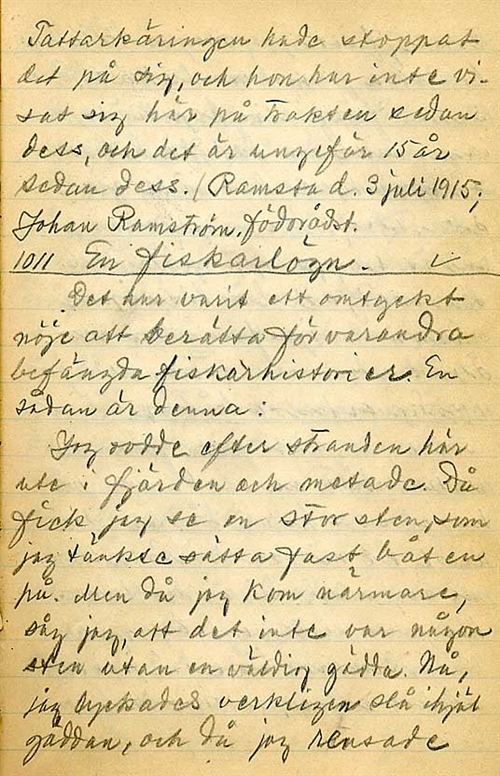 Tattarkäringen hade stoppat
det på sig, och hon har inte vi-
sat sig här på trakten sedan
dess, och det är ungefär 15 år
sedan dess. (Ramsta d. 3 juli 1915;
Johan Ramström, födorådst.
1011 En fiskarlögn. ✓
Det har varit ett omtyckt
nöje att berätta för varandra
befängda fiskarhistorier. En
sådan är denna:
Jag rodde efter stranden här
ute i fjärden och metade. Då
fick jag se en stor sten, som
jag tänkte sätta fast båten
på. Men då jag kom närmare,
såg jag, att det inte var någon
sten utan en väldig gädda. Nå,
jag lyckades verkligen slå ihjäl
gäddan, och då jag rensade